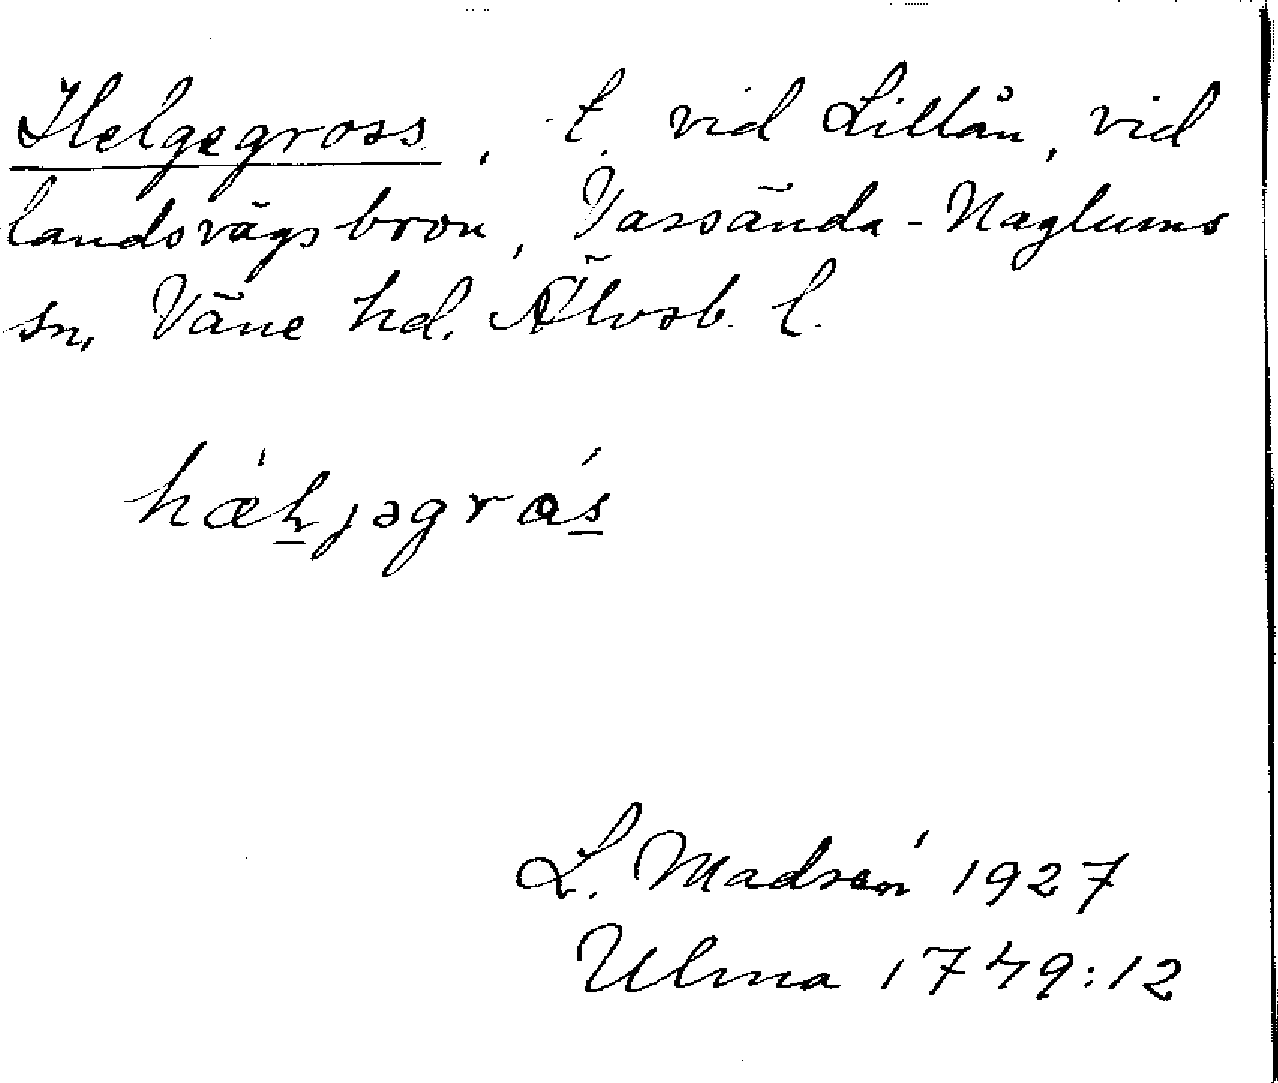 Helgegross, t. vid Lillån, vid
landsvägsbron, Vassända-Naglums
sn, Väne hd. Älvsb. l.
hæ̀ljəgrås
L. Madsén 1927
Ulma 1749:12